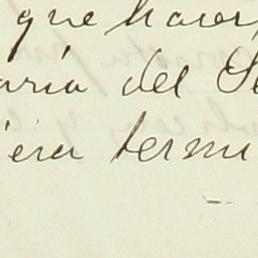 que hacer,
aria del Se
iera termi